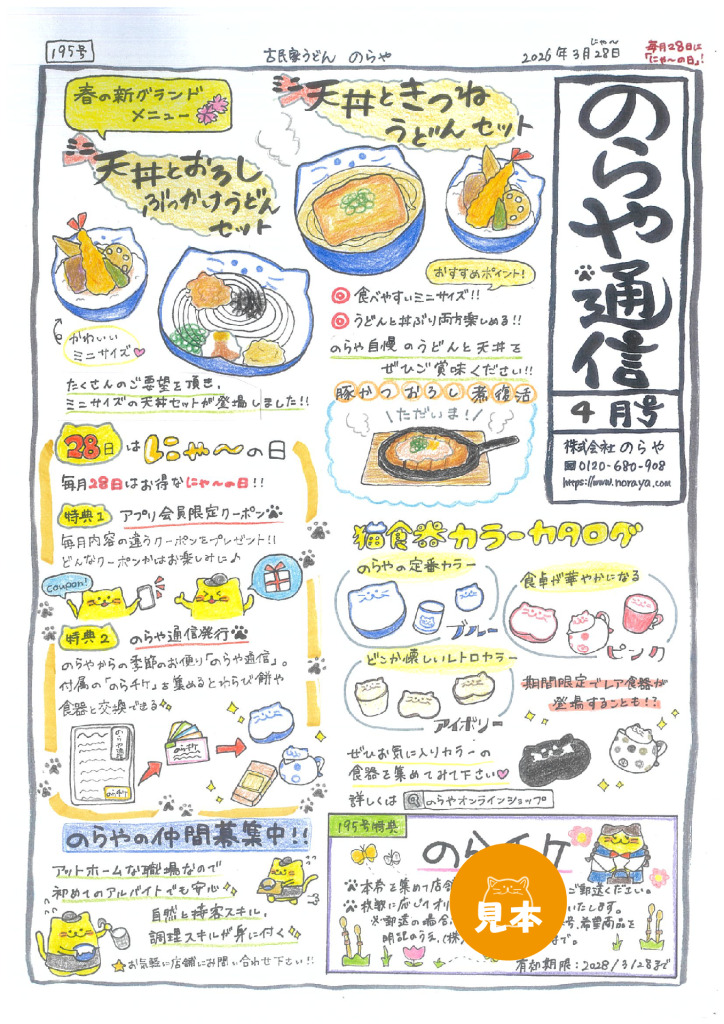 195号
古民家うどん のらや
2026年3月28日
にゃ～
毎月28日は
「にゃ～の日」!
のらや通信
4月号
株式会社 のらや
0120-680-908
https://www.noraya.com
春の新グランド
メニュー
天丼ときつね
うどんセット
天丼とおろし
ぶっかけうどん
セット
かわいい
ミニサイズ
たくさんのご要望を頂き、
ミニサイズの天丼セットが登場しました!!
おすすめポイント!
食べやすいミニサイズ!!
うどんと丼ぶり両方楽しめる!!
のらや自慢のうどんと天丼を
ぜひご賞味ください!!
豚かつおろし煮復活
\ただいま!/
28日はにゃ～の日
毎月28日はお得なにゃ～の日!!
特典1 アプリ会員限定クーポン
毎月内容の違うクーポンをプレゼント!!
どんなクーポンかはお楽しみに♪
coupon!
特典2 のらや通信発行
のらやからの季節のお便り「のらや通信」。
付属の「のらチケ」を集めるとわらび餅や
食器と交換できる
のらや通信
のらチケ
のらチケ
猫食器カラーカタログ
のらやの定番カラー
ブルー
食卓が華やかになる
ピンク
どこか懐しいレトロカラー
アイボリー
期間限定でレア食器が
登場することも!?
ぜひお気に入りカラーの
食器を集めてみて下さい♡
詳しくは のらやオンラインショップ
のらやの仲間募集中!!
アットホームな職場なので
初めてのアルバイトでも安心
自然と接客スキル、
調理スキルが身に付く
★お気軽に店舗にお問い合わせ下さい!!
195号特典
のらチケ
本券を集め店
ご郵送ください。
枚数に応じてオリ
いたします。
※郵送の場合
号、希望商品を
明記のうえ、(株)
まで。
有効期限:2028/3/28まで
見本